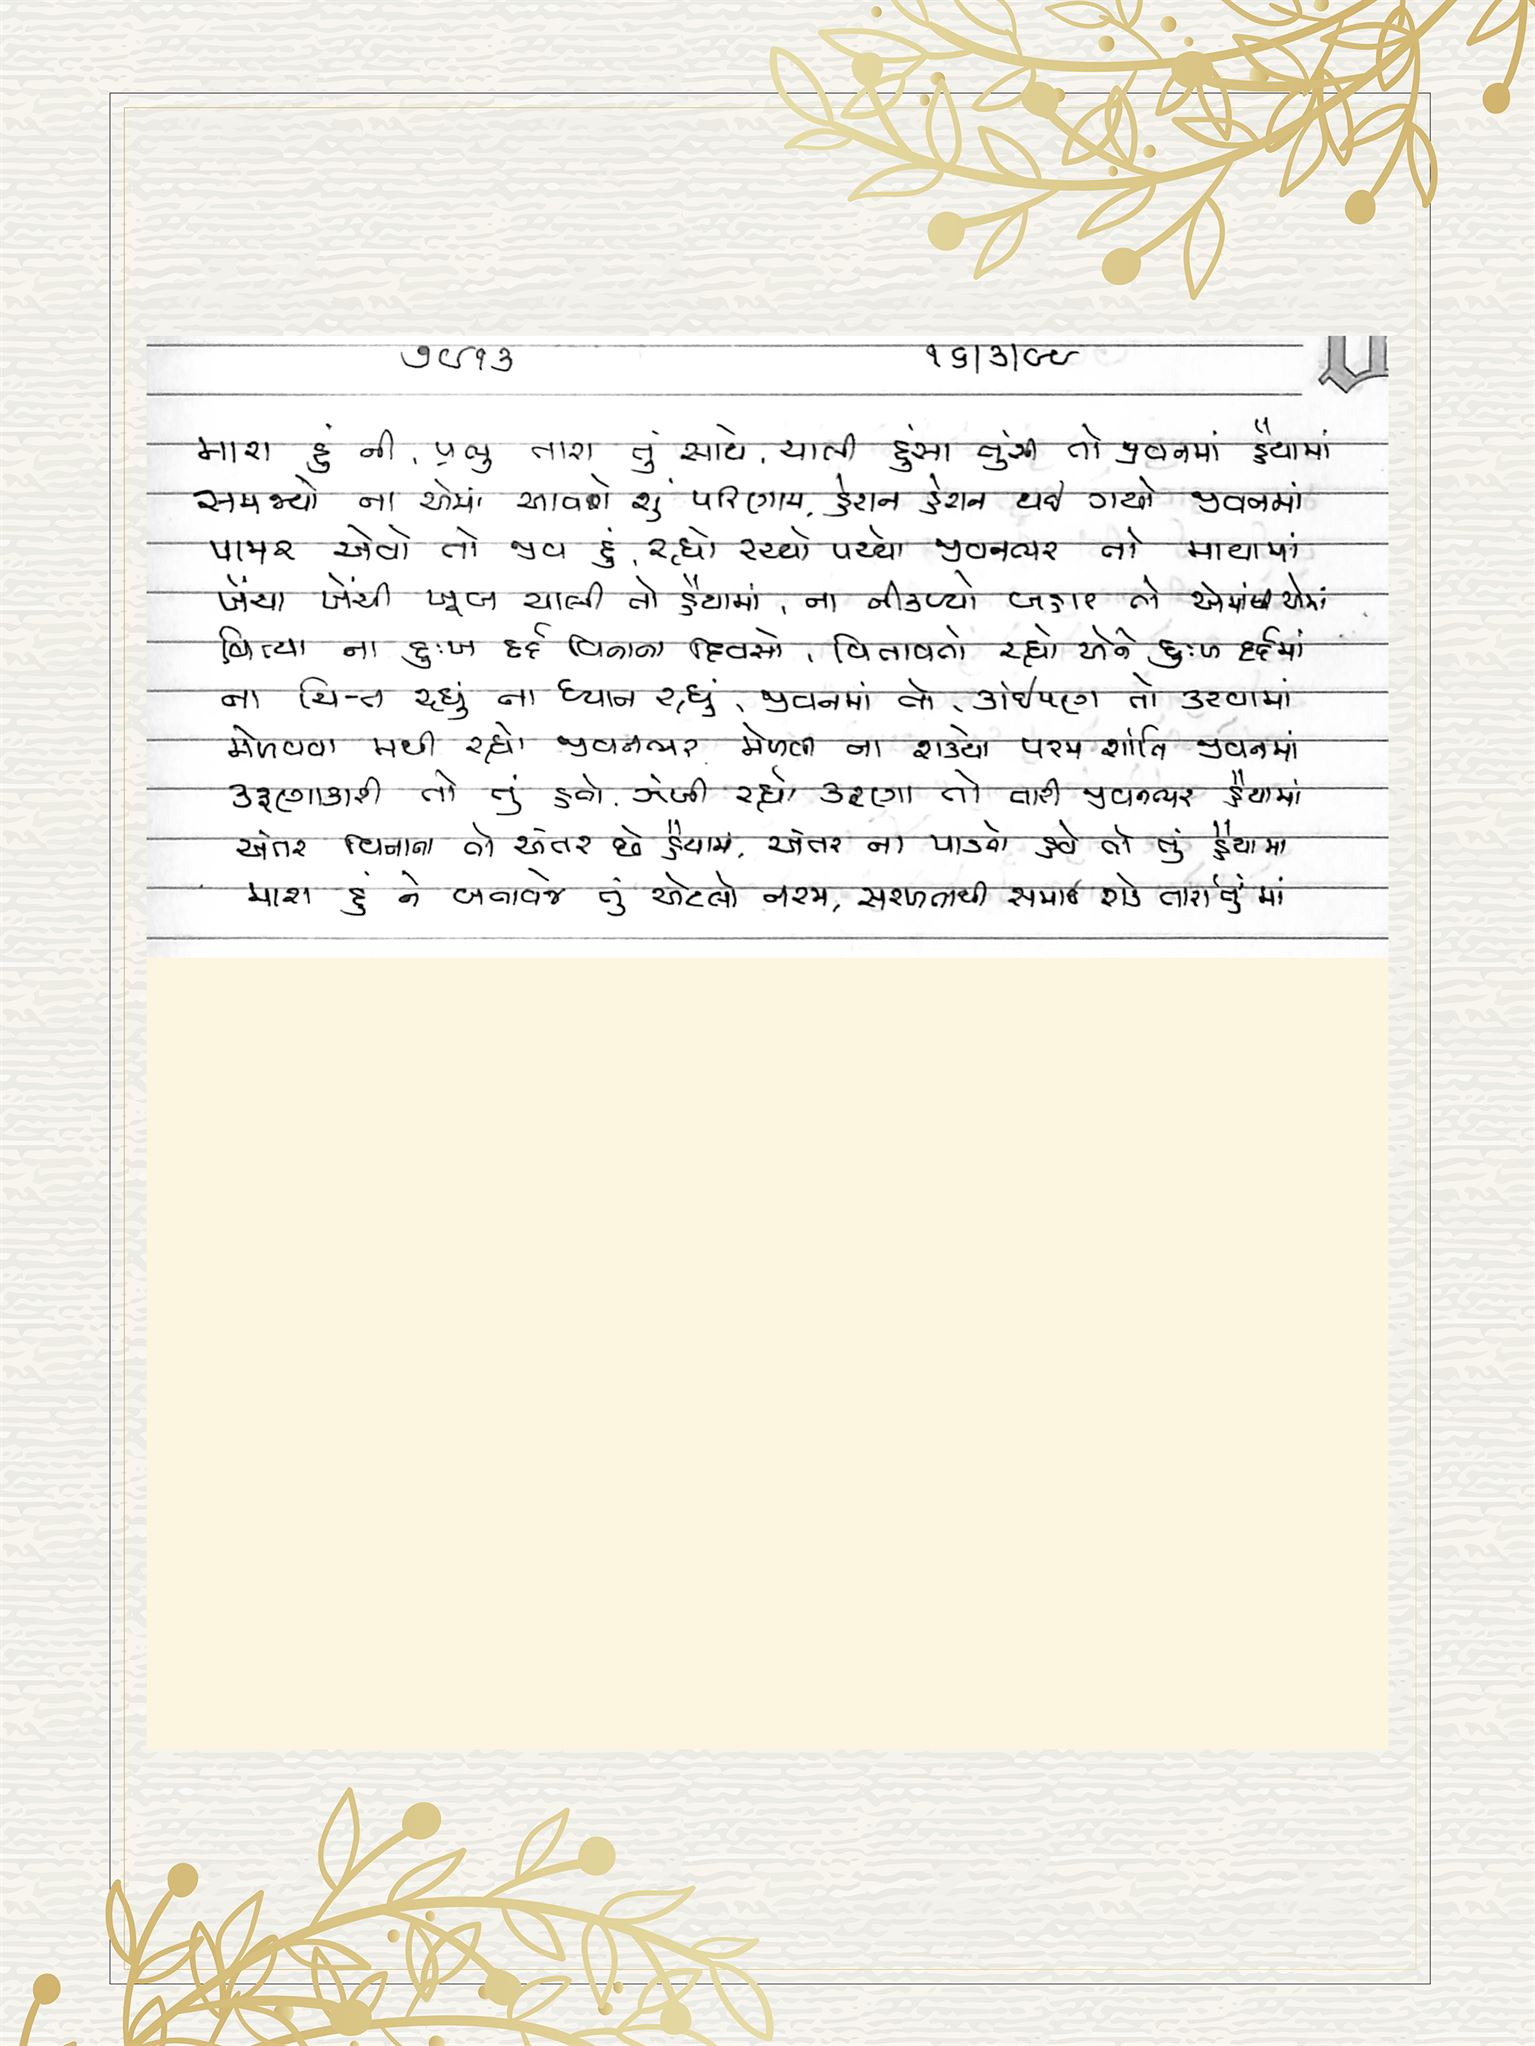 ૭૯૧૩ ૧૬/૩/૯૯
મારા હું ની, પ્રભુ તારા તું સાથે, ચાલી હુંસા તુંસી તો જીવનમાં હૈયામાં
સમજ્યો ના એમાં આવશે શું પરિણામ, હેરાન હેરાન થઈ ગયો જીવનમાં
પામર એવો તો જીવ હું, રહ્યો રચ્યો પચ્યો જીવનભર તો માયામાં
ખેંચા ખેંચી ખૂબ ચાલી તો હૈયામાં, ના નીકળ્યો બહાર તો
વિત્યા ના દુઃખ દર્દ વિનાના દિવસો, વિતાવતો રહ્યો એને દુઃખ દર્દમાં
ના ચિત્ત રહ્યું ના ધ્યાન રહ્યું, જીવનમાં તો, કાંઈપણ તો કરવામાં
મેળવવા મથી રહ્યો જીવનભર મેળવી ના શક્યો પરમ શાંતિ જીવનમાં
કરૂણાકારી તો તું હવે, ઝંખી રહ્યો કરૂણા તો તારી જીવનભર હૈયામાં
અંતર વિનાના તો અંતર છે હૈયામાં, અંતર ના પાડવો હવે તો તું હૈયામાં
મારા હું ને બનાવજે તું એટલો નરમ, સરળતાથી સમાઈ શકે તારા તું માં